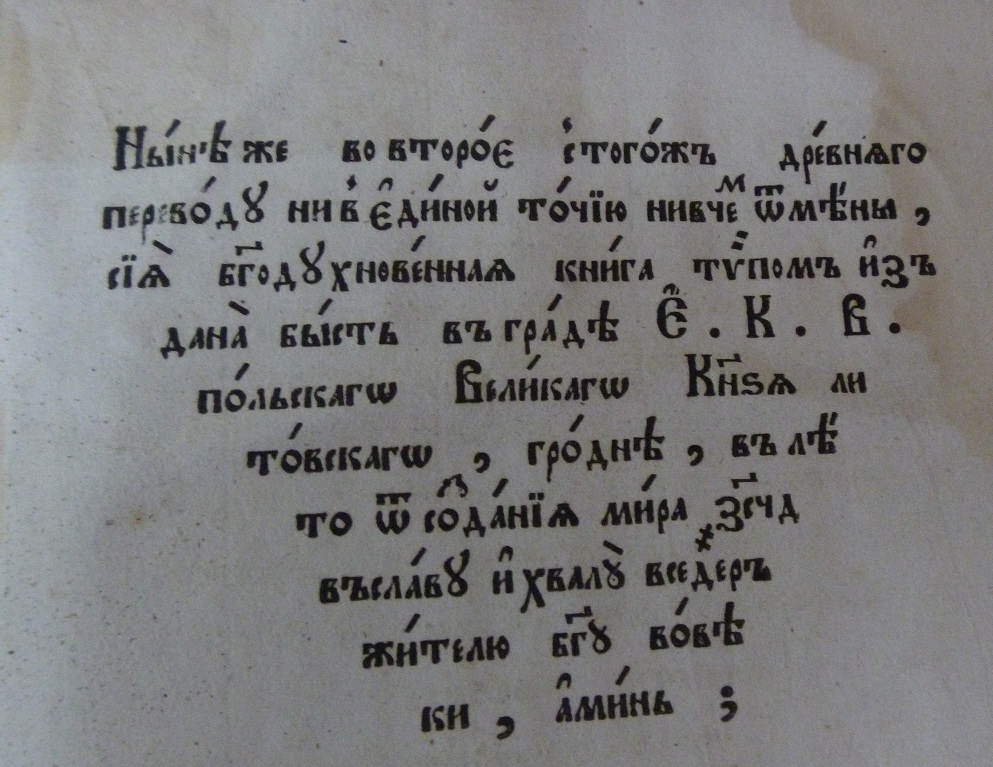 Ны́нѣ же во второ́є с̾того́жъ дре́внѧго
перево́дꙋ нив̾ є҆ди́ной то́чїю нивчеⷨ ѿмѣ́ны ,
сїѧ̀ бг҃одꙋхнове́ннаѧ кни́га тѷ́помъ и҆зъ
дана̀ бы́сть въ гра́дѣ Є҆҃ . К . В .
по́льскагѡ Вели́кагѡ Кн҃ѕѧ ли
то́вскагѡ , гро́днѣ , въ лѣ́
то ѿ соⷥда́нїѧ ми́ра ҂зс҃чд
въсла́вꙋ и҆ хвалꙋ̀ вседеръ
жи́телю бг҃ꙋ во́вѣ
ки , а҆ми́нь ;